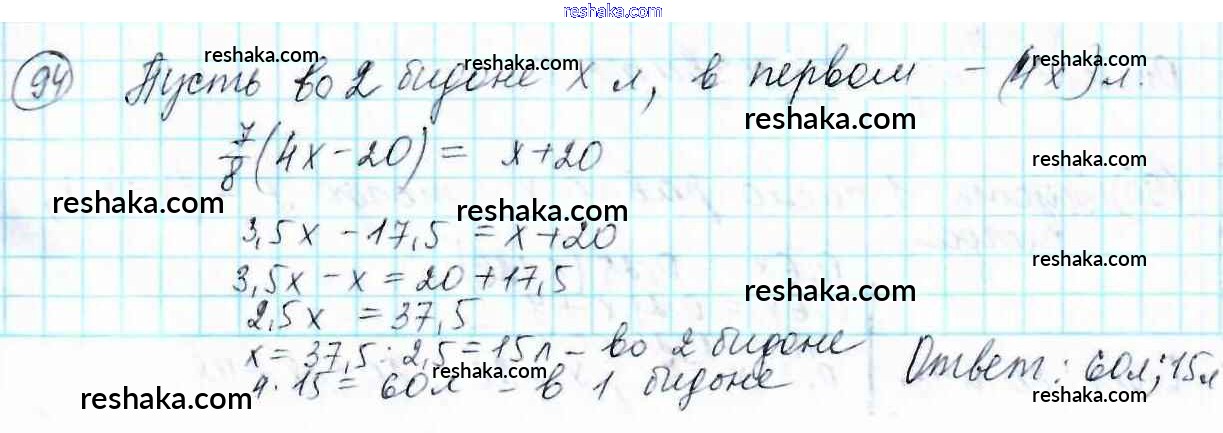 reshaka.com
94 Пусть во 2 бидоне x л, в первом – (4x) л.
reshaka.com
reshaka.com
reshaka.com
7/8 (4x – 20) = x + 20
reshaka.com
reshaka.com
reshaka.com
3,5x – 17,5 = x + 20
reshaka.com
3,5x – x = 20 + 17,5
reshaka.com
2,5x = 37,5
x = 37,5 : 2,5 = 15л – во 2 бидоне
4 · 15 = 60л – в 1 бидоне
Ответ: 60л; 15л
reshaka.com
reshaka.com
reshaka.com